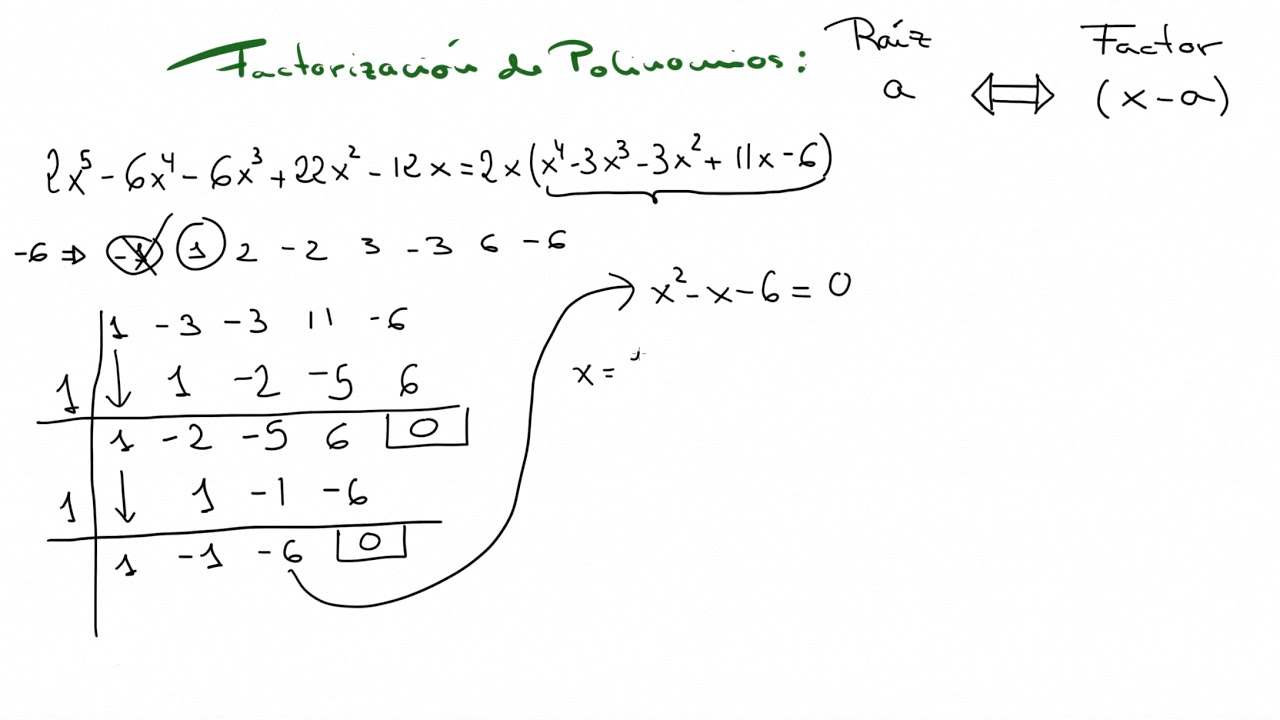 Factorización de Polinomios:
Raíz Factor
a ⟺ (x-a)
2x⁵ - 6x⁴ - 6x³ + 22x² - 12x = 2x(x⁴ - 3x³ - 3x² + 11x - 6)
-6 ⇒ -1 1 2 -2 3 -3 6 -6
x² - x - 6 = 0
1 -3 -3 11 -6
1 ↓ 1 -2 -5 6
x =
1 -2 -5 6 0
1 ↓ 1 -1 -6
1 -1 -6 0